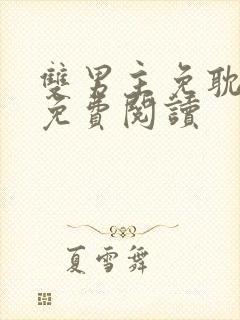 雙男主免耽
免費閱讀
夏雪舞